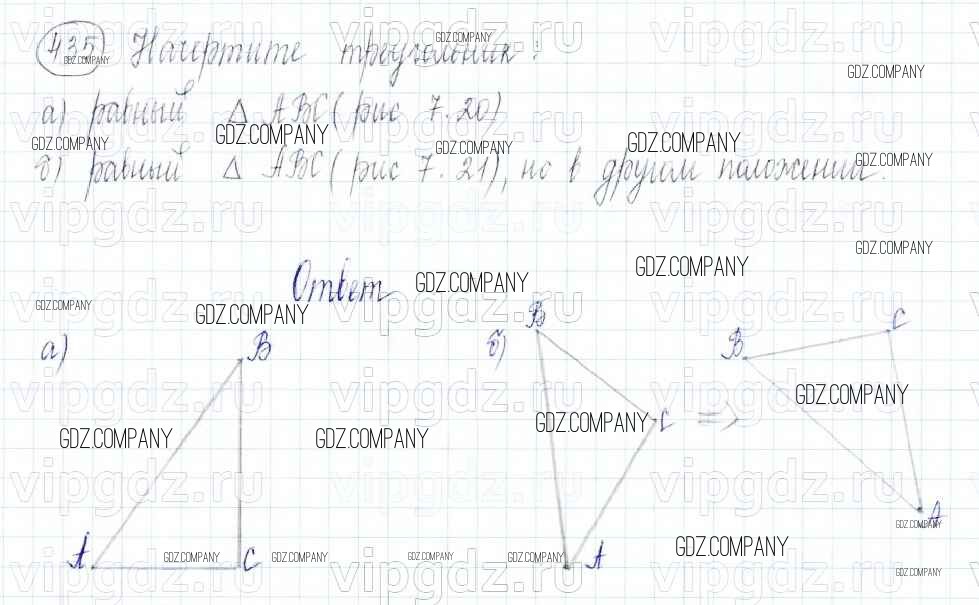 435 Начертите треугольник:
а) равный Δ ABC (рис 7.20)
б) равный Δ ABC (рис 7.21), но в другом положении.
Ответ
а) B A C
б) B C A => B C A
vipgdz.ru
GDZ.COMPANY